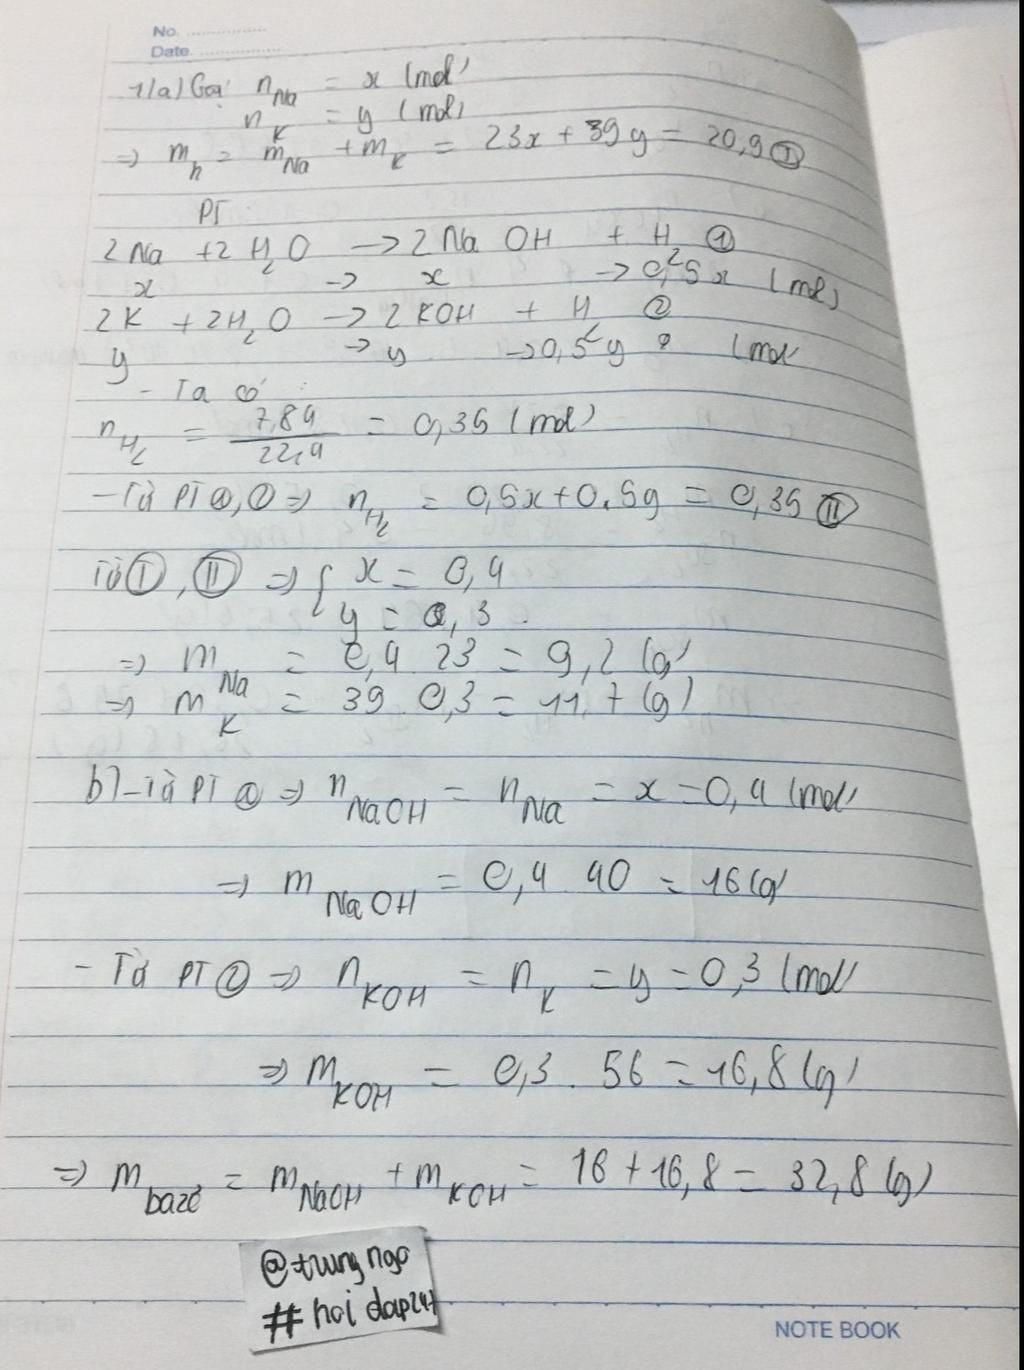 No. ...............
Date. ...............
1/a) Gọi n_Na = x (mol)
n_K = y (mol)
=> m_h = m_Na + m_K = 23x + 39y = 20,9 Ⓘ
PT:
2Na + 2H₂O -> 2NaOH + H₂ ①
x -> x -> 0,5x (mol)
2K + 2H₂O -> 2KOH + H₂ ②
y -> y -> 0,5y (mol
- Ta có :
n_H₂ = 7,84/22,4 = 0,35 (mol)
- Từ PT ①, ② => n_H₂ = 0,5x + 0,5y = 0,35 Ⓘ︎Ⓘ
Từ Ⓘ, ⒾⒾ => { x = 0,4
y = 0,3
=> m_Na = 0,4 23 = 9,2 (g)
=> m_K = 39 0,3 = 11,7 (g)
b) - Từ PT ① => n_NaOH = n_Na = x = 0,4 (mol)
=> m_NaOH = 0,4 40 = 16 (g)
- Từ PT ② => n_KOH = n_K = y = 0,3 (mol)
=> m_KOH = 0,3 . 56 = 16,8 (g)
=> m_bazơ = m_NaOH + m_KOH = 16 + 16,8 = 32,8 (g)
@trungngo
# hoidap247
NOTE BOOK